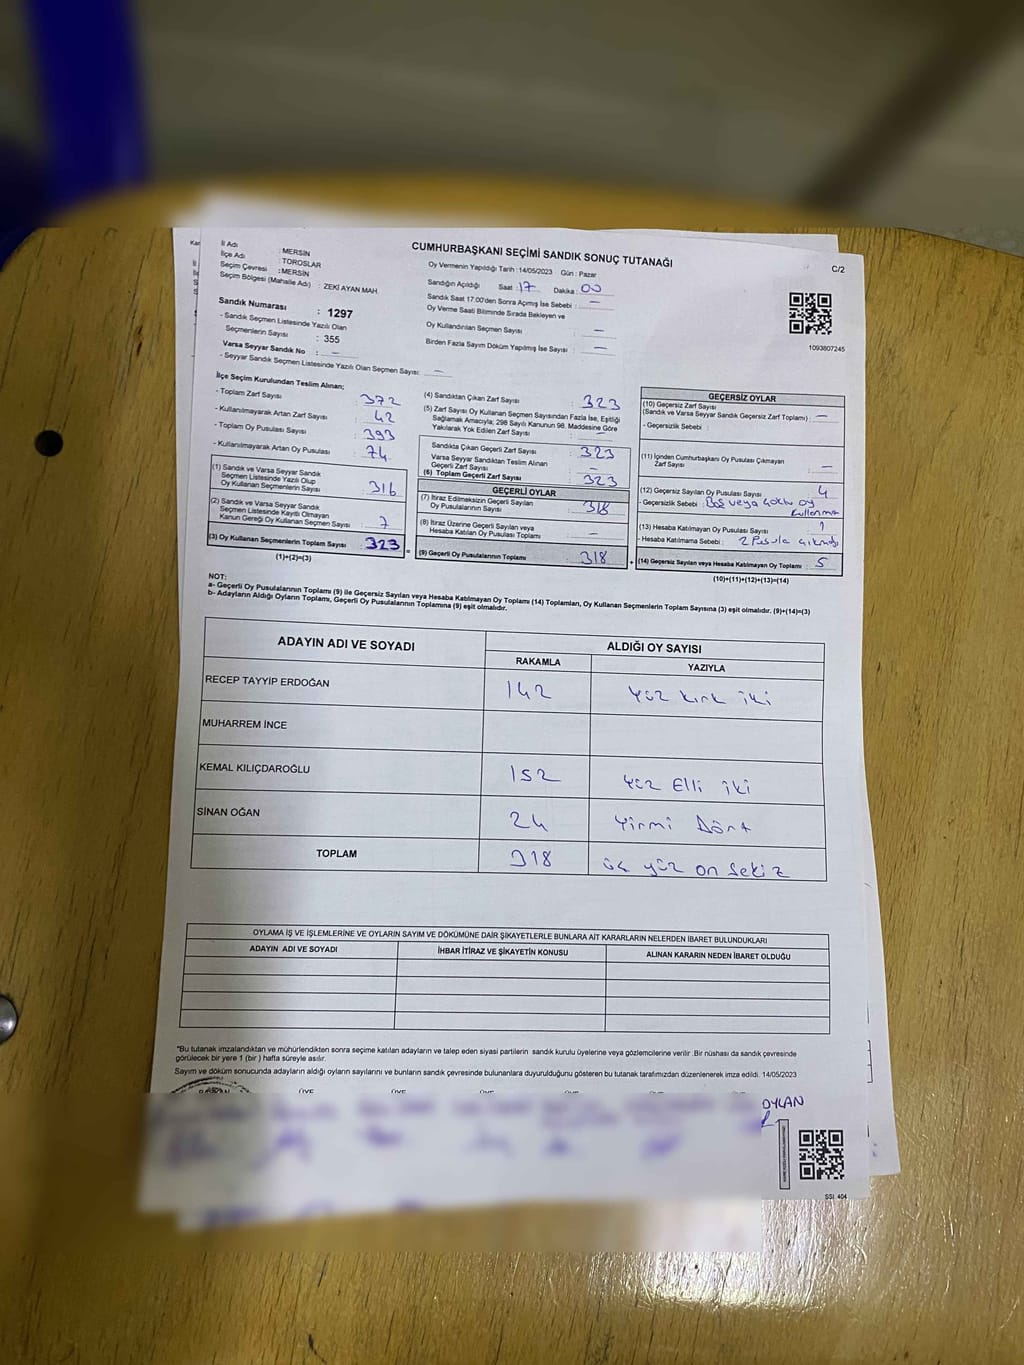 CUMHURBAŞKANI SEÇİMİ SANDIK SONUÇ TUTANAĞI
C/2
İl Adı : MERSİN
İlçe Adı : TOROSLAR
Seçim Çevresi : MERSİN
Seçim Bölgesi (Mahalle Adı) : ZEKİ AYAN MAH.
Sandık Numarası : 1297
- Sandık Seçmen Listesinde Yazılı Olan
Seçmenlerin Sayısı : 355
Varsa Seyyar Sandık No : —
- Seyyar Sandık Seçmen Listesinde Yazılı Olan Seçmen Sayısı: —
Oy Vermenin Yapıldığı Tarih :14/05/2023 Gün : Pazar
Sandığın Açıldığı Saat :17 Dakika :00
Sandık Saat 17:00'den Sonra Açımış İse Sebebi : —
Oy Verme Saati Bitiminde Sırada Bekleyen ve
Oy Kullandırılan Seçmen Sayısı : —
Birden Fazla Sayım Döküm Yapılmış İse Sayısı : —
1093807245
İlçe Seçim Kurulundan Teslim Alınan;
- Toplam Zarf Sayısı : 372
- Kullanılmayarak Artan Zarf Sayısı : 42
- Toplam Oy Pusulası Sayısı : 393
- Kullanılmayarak Artan Oy Pusulası : 74
(1) Sandık ve Varsa Seyyar Sandık
Seçmen Listesinde Yazılı Olup
Oy Kullanan Seçmenlerin Sayısı : 316
(2) Sandık ve Varsa Seyyar Sandık
Seçmen Listesinde Kayıtlı Olmayan
Kanun Gereği Oy Kullanan Seçmen Sayısı : 7
(3) Oy Kullanan Seçmenlerin Toplam Sayısı : 323
(1)+(2)=(3)
(4) Sandıktan Çıkan Zarf Sayısı : 323
(5) Zarf Sayısı Oy Kullanan Seçmen Sayısından Fazla İse, Eşitliği
Sağlamak Amacıyla; 298 Sayılı Kanunun 98. Maddesine Göre
Yakılarak Yok Edilen Zarf Sayısı : —
Sandıkta Çıkan Geçerli Zarf Sayısı : 323
Varsa Seyyar Sandıktan Teslim Alınan
Geçerli Zarf Sayısı : —
(6) Toplam Geçerli Zarf Sayısı : 323
GEÇERLİ OYLAR
(7) İtiraz Edilmeksizin Geçerli Sayılan
Oy Pusulalarının Sayısı : 318
(8) İtiraz Üzerine Geçerli Sayılan veya
Hesaba Katılan Oy Pusulası Toplamı : —
= (9) Geçerli Oy Pusulalarının Toplamı : 318
GEÇERSİZ OYLAR
(10) Geçersiz Zarf Sayısı
(Sandık ve Varsa Seyyar Sandık Geçersiz Zarf Toplamı) : —
- Geçersizlik Sebebi :
(11) İçinden Cumhurbaşkanı Oy Pusulası Çıkmayan
Zarf Sayısı : —
(12) Geçersiz Sayılan Oy Pusulası Sayısı : 4
- Geçersizlik Sebebi : Boş veya çoklu oy
kullanma
(13) Hesaba Katılmayan Oy Pusulası Sayısı : 1
- Hesaba Katılmama Sebebi : 2 Pusula çıkması
+ (14) Geçersiz Sayılan veya Hesaba Katılmayan Oy Toplamı : 5
(10)+(11)+(12)+(13)=(14)
NOT:
a- Geçerli Oy Pusulalarının Toplamı (9) ile Geçersiz Sayılan veya Hesaba Katılmayan Oy Toplamı (14) Toplamları, Oy Kullanan Seçmenlerin Toplam Sayısına (3) eşit olmalıdır. (9)+(14)=(3)
b- Adayların Aldığı Oyların Toplamı, Geçerli Oy Pusulalarının Toplamına (9) eşit olmalıdır.
ADAYIN ADI VE SOYADI ALDIĞI OY SAYISI
RAKAMLA YAZIYLA
RECEP TAYYİP ERDOĞAN 142 Yüz kırk iki
MUHARREM İNCE
KEMAL KILIÇDAROĞLU 152 Yüz Elli iki
SİNAN OĞAN 24 Yirmi Dört
TOPLAM 318 üç yüz on sekiz
OYLAMA İŞ VE İŞLEMLERİNE VE OYLARIN SAYIM VE DÖKÜMÜNE DAİR ŞİKAYETLERLE BUNLARA AİT KARARLARIN NELERDEN İBARET BULUNDUKLARI
ADAYIN ADI VE SOYADI İHBAR İTİRAZ VE ŞİKAYETİN KONUSU ALINAN KARARIN NEDEN İBARET OLDUĞU
*Bu tutanak imzalandıktan ve mühürlendikten sonra seçime katılan adayların ve talep eden siyasi partilerin sandık kurulu üyelerine veya gözlemcilerine verilir .Bir nüshası da sandık çevresinde
görülecek bir yere 1 (bir ) hafta süreyle asılır.
Sayım ve döküm sonucunda adayların aldığı oyların sayılarını ve bunların sandık çevresinde bulunanlara duyurulduğunu gösteren bu tutanak tarafımızdan düzenlenerek imza edildi. 14/05/2023
OYLAN
SSI_404